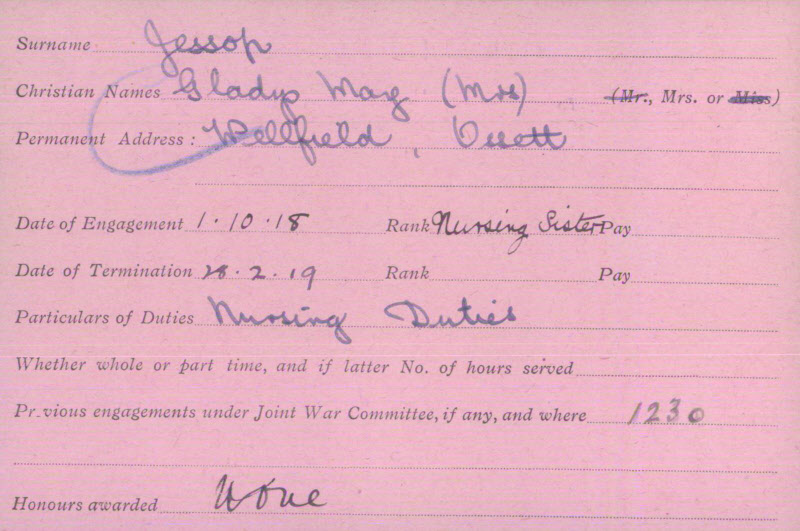 Surname Jessop
Christian Names Gladys May (Mrs) (Mr., Mrs. or Miss)
Permanent Address: Wellfield, Ossett
Date of Engagement 1.10.18 Rank Nursing Sister Pay
Date of Termination 28.2.19 Rank Pay
Particulars of Duties Nursing Duties
Whether whole or part time, and if latter No. of hours served
Pr.vious engagements under Joint War Committee, if any, and where 1230
Honours awarded None